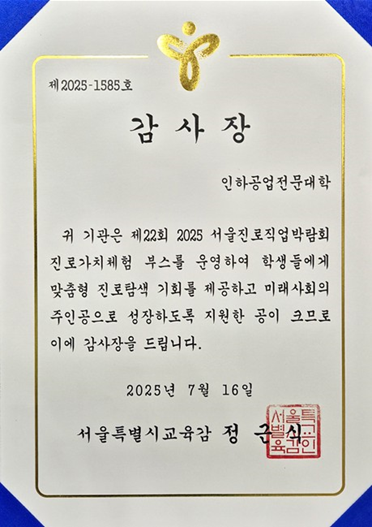 제2025-1585호
감사장
인하공업전문대학
귀 기관은 제22회 2025 서울진로직업박람회
진로가치체험 부스를 운영하여 학생들에게
맞춤형 진로탐색 기회를 제공하고 미래사회의
주인공으로 성장하도록 지원한 공이 크므로
이에 감사장을 드립니다.
2025년 7월 16일
서울특별시교육감 정근식